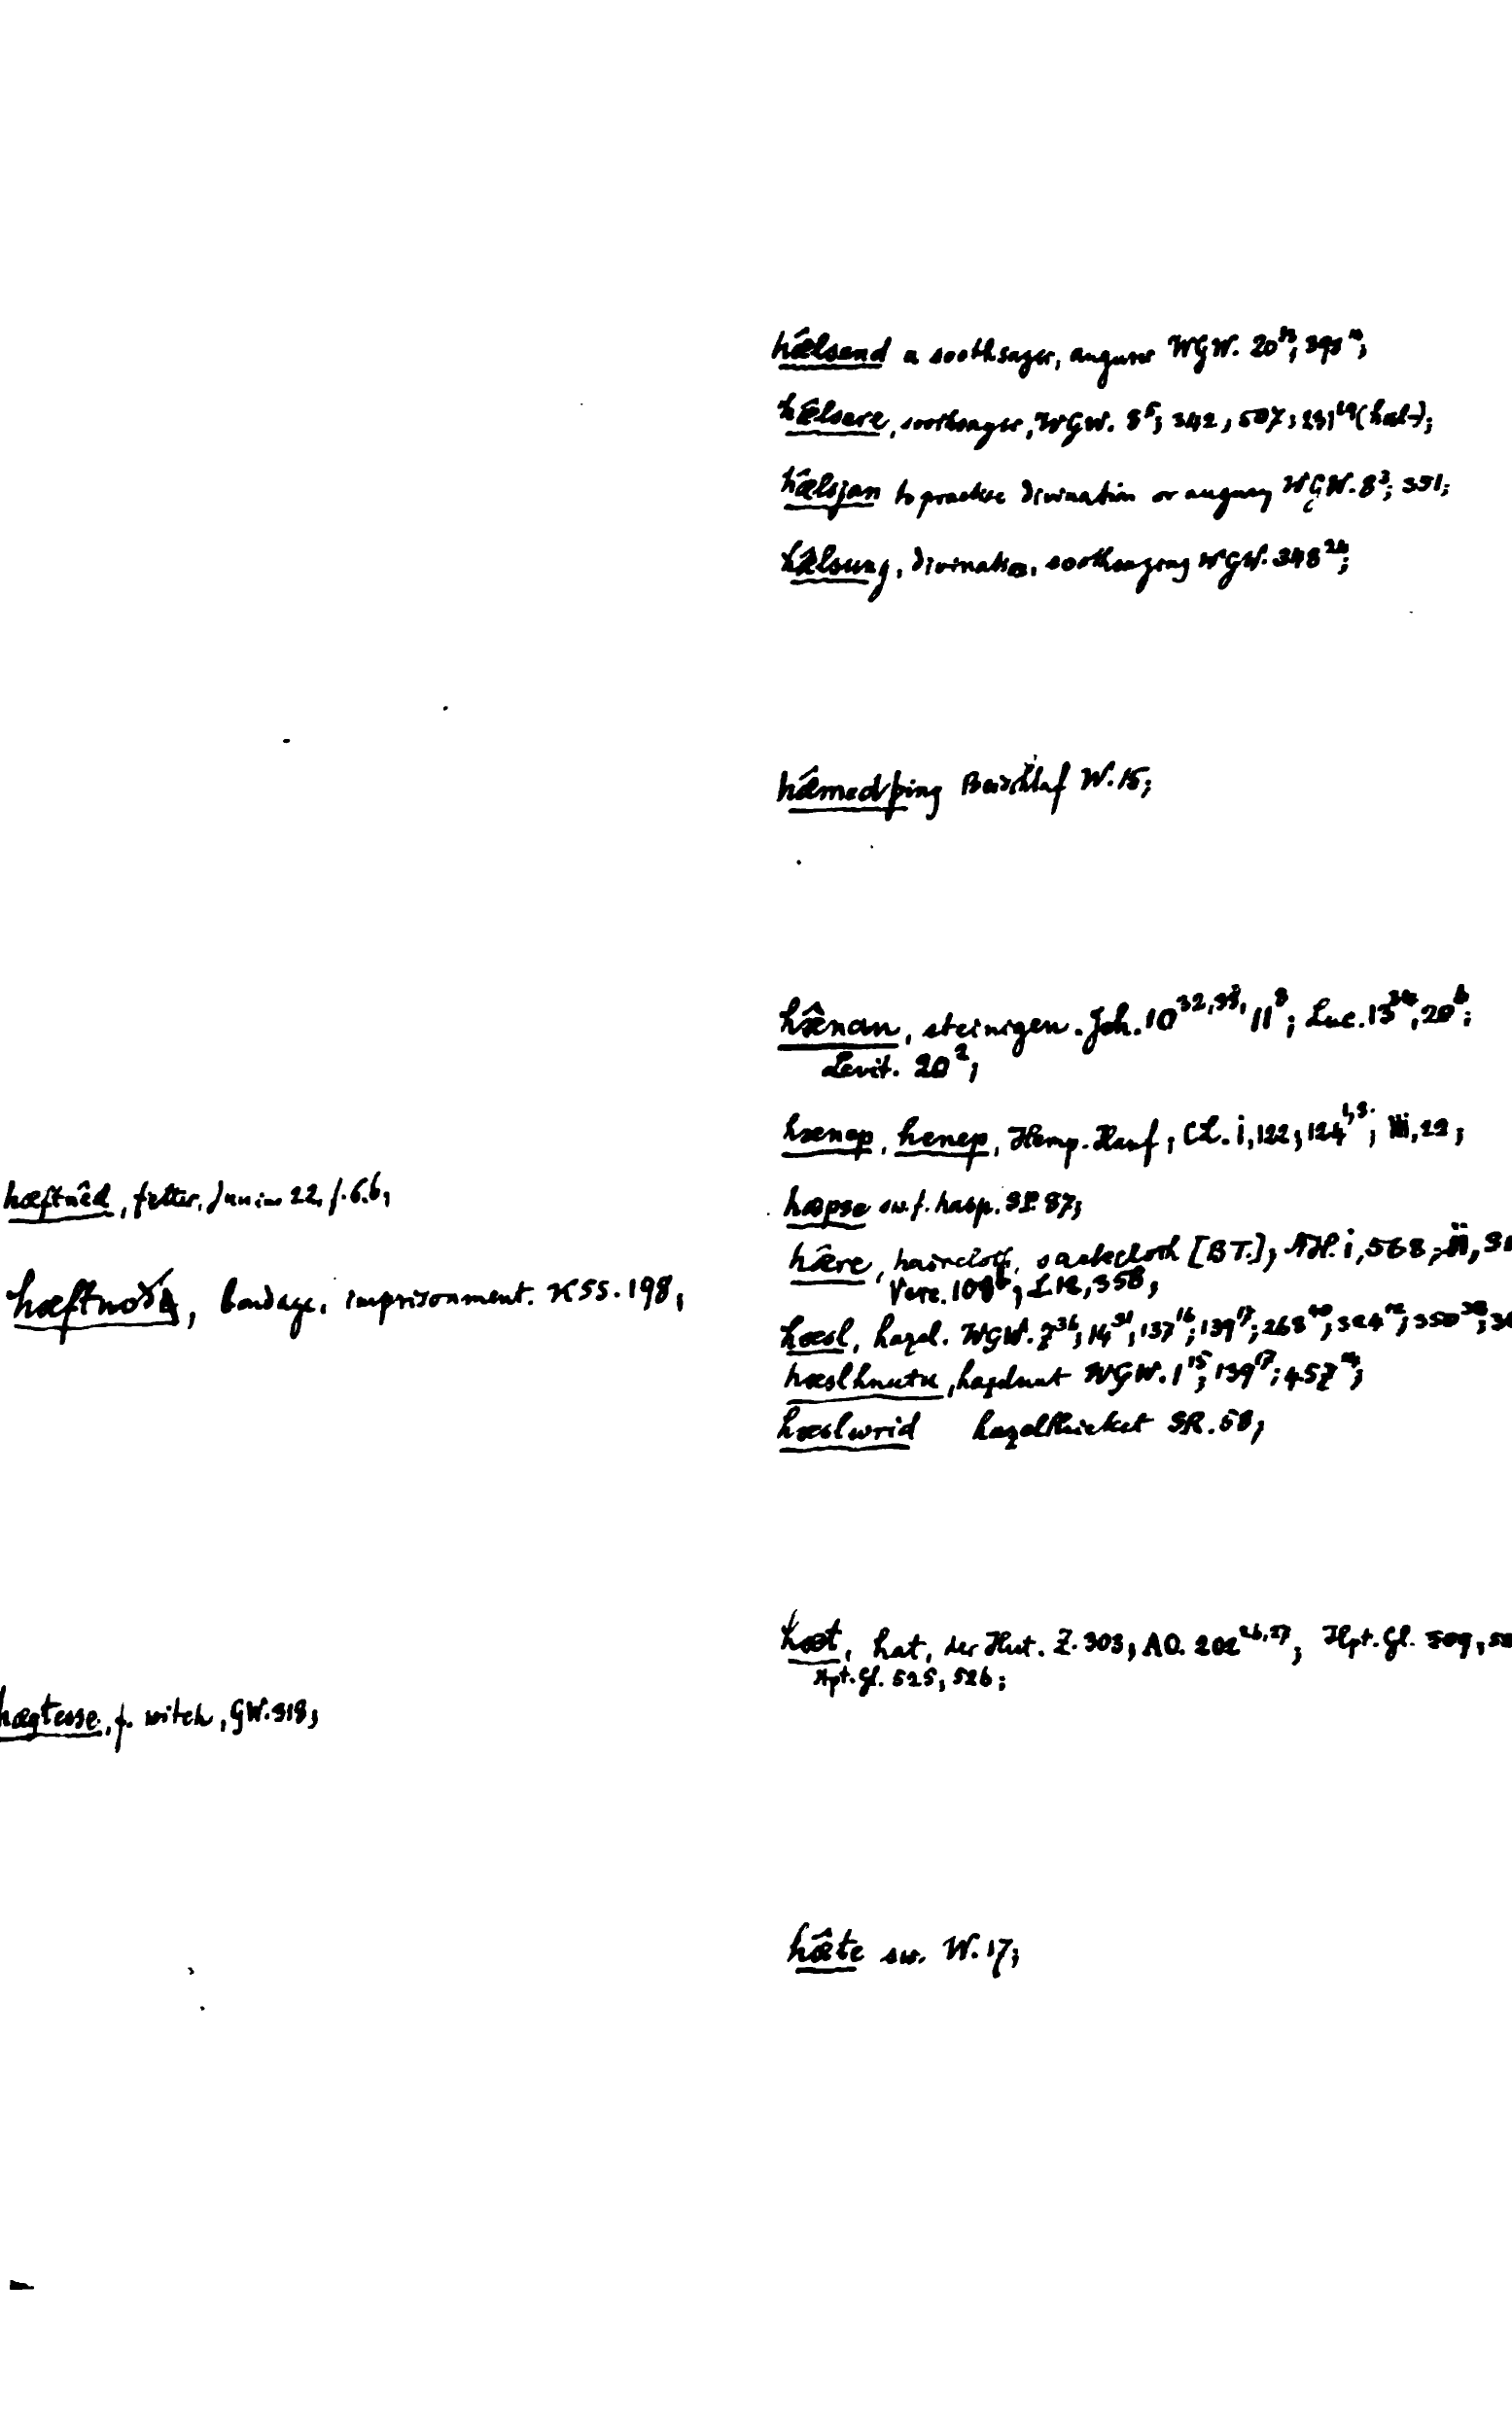 hæftnêd, fetter, Junius 22, f. 6.b;
hæftnoð, bondage, imprisonment. KSS. 198;
hægtesse, f. witch, GW. 318;
hǽlsend a soothsayer, augurer WGW. 20
hǽlsere, soothsayer, WGW. 8⁵; 342, 507; (hal-);
hǽlsjan to practise divination or augury WGW. 8³; 351;
hǽlsung, divination, soothsaying WGW. 348²⁴;
hǽmedþing Beischlaf W. 15;
hǣnan, steinigen. Joh. 10³²,³³, 11⁸; Luc. 13³⁴, 20⁶;
Levit. 20²;
hænep, henep, Hemp. Hanf; CL. i, 122; 124¹,³; iii, 22;
hæpse sw. f. hasp. SP. 87;
hǣre, haircloth, sackcloth [BT.]; ÆH. i, 568; ii,
Verc. 108ᵇ; LR, 358;
hæsl, hazel. WGW. 7³⁶; 14³¹; 137¹⁶; 139¹⁷; 268⁴⁰; 324¹²; 350³⁸;
hæslhnutu, hazelnut WGW. 1¹⁵; 139¹⁷; 457
hæslwrid hazelthicket SR. 58;
hæt, hat, der Hut. Z. 303; AO. 202²⁶,²⁷; Hpt. Gl. 509,
Hpt. Gl. 525, 526;
hǣte sw. W. 17;